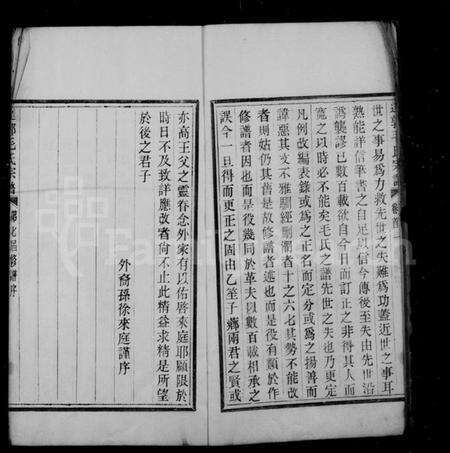 世之事易為力救先世之失難為功蓋近世之事耳
熟能詳信筆書之自足以信今傳後至失由先世沿
為襲謬已數百載欲自今日而訂正之非得其人而
寬之以時必不能矣毛氏之譜先世之失也乃更定
凡例改編表錄或為之正名而定分或為之揚善而
諱惡其文不雅馴經刪潤者十之六七其勢不能改
者則姑仍其舊是故修譜者述也而是役有類於作
修譜者因也而是役幾同於革夫以數百載相承之
誤今一旦得而更正之固由乙笙子鄉兩君之賢或
亦高王父之靈眷念外家有以佑啓來庭耶顧限於
時日不及致詳應改者尚不止此精益求精是所望
於後之君子
外裔孫徐來庭謹序
毛氏宗譜
序